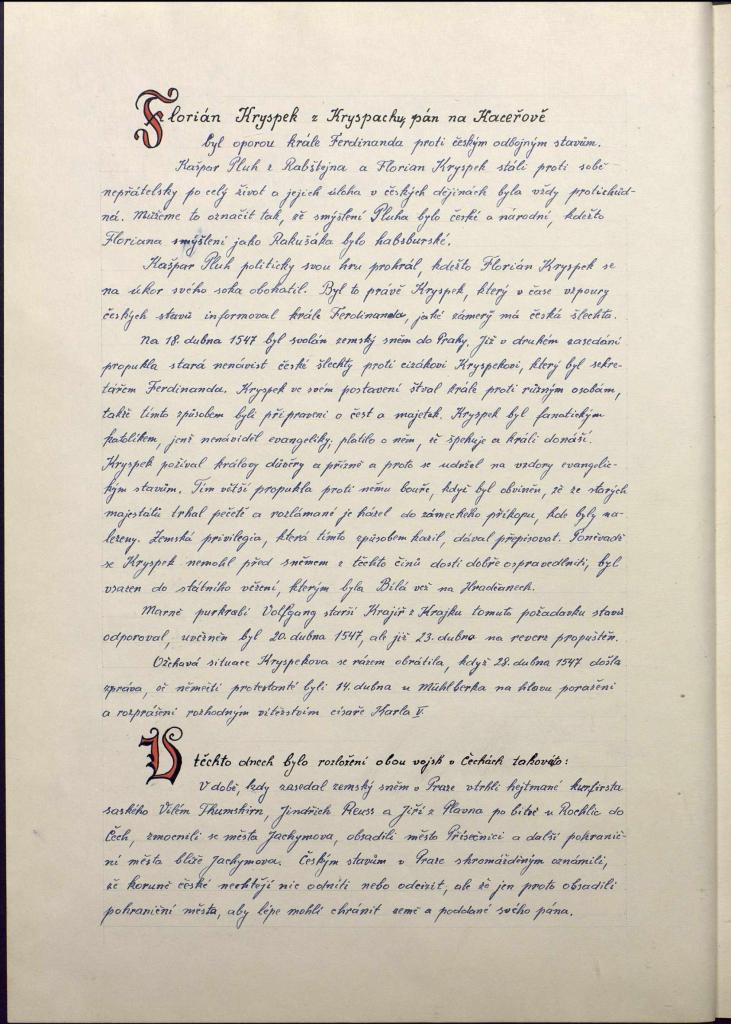 Florián Kryspek z Kryspachu, pán na Kaceřově
byl oporou krále Ferdinanda proti českým odbojným stavům.
Kašpar Pluh z Rabštejna a Florian Kryspek stáli proti sobě
nepřátelsky po celý život a jejich úloha v českých dějinách byla vždy protichůd-
ná. Můžeme to označit tak, že smýšlení Pluha bylo české a národní, kdežto
Floriana smýšlení jako Rakušáka bylo habsburské.
Kašpar Pluh politicky svou hru prohrál, kdežto Florián Kryspek se
na úkor svého soka obohatil. Byl to právě Kryspek, který v čase vzpoury
českých stavů informoval krále Ferdinanda, jaké záměry má česká šlechta.
Na 18. dubna 1547 byl svolán zemský sněm do Prahy. Již v druhém zasedání
propukla stará nenávist české šlechty proti cizákovi Kryspekovi, který byl sekre-
tářem Ferdinanda. Kryspek ve svém postavení štval krále proti různým osobám,
takže tímto způsobem byli připraveni o čest a majetek. Kryspek byl fanatickým
katolíkem, jenž nenáviděl evangelíky, platilo o něm, že špehuje a králi donáší.
Kryspek požíval královy důvěry a přízně a proto se udržel na vzdory evangelic-
kým stavům. Tím větší propukla proti němu bouře, když byl obviněn, že ze starých
majestátů trhal pečetě a rozlámané je házel do zámeckého příkopu, kde byly na-
lezeny. Zemská privilegia, která tímto způsobem kazil, dával přepisovat. Poněvadž
se Kryspek nemohl před sněmem z těchto činů dosti dobře ospravedlniti, byl
vsazen do státního vězení, kterým byla Bílá věž na Hradčanech.
Marně purkrabí Volfgang starší Krajíř z Krajku tomuto požadavku stavů
odporoval, uvězněn byl 20. dubna 1547, ale již 23. dubna na revers propuštěn.
Ožehavá situace Kryspekova se rázem obrátila, když 28. dubna 1547 došla
zpráva, že němečtí protestanté byli 14. dubna u Mühlberka na hlavu poraženi
a rozprášeni rozhodným vítězstvím císaře Karla V.
V těchto dnech bylo rozložení obou vojsk v Čechách takovéto:
V době, kdy zasedal zemský sněm v Praze vtrhli hejtmané kurfirsta
saského Vilém Thumshirn, Jindřich Reuss a Jiří z Plavna po bitvě u Rochlic do
Čech, zmocnili se města Jáchymova, obsadili město Přísečnici a další pohranič-
ní města blíže Jáchymova. Českým stavům v Praze shromážděným oznámili,
že koruně české nechtějí nic odníti nebo odcizit, ale že jen proto obsadili
pohraniční města, aby lépe mohli chránit země a poddané svého pána.